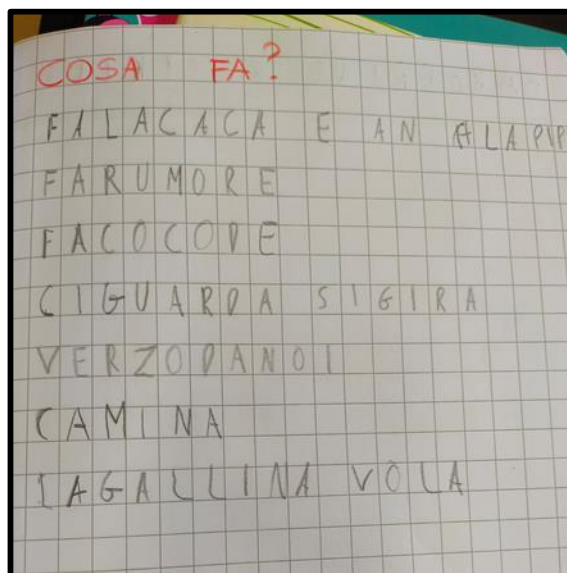 COSA FA?
FALACACA E AN ALAPIP
FARUMORE
FACOCODE
CIGUARDA SIGIRA
VERZODANOI
CAMINA
LAGALLINA VOLA